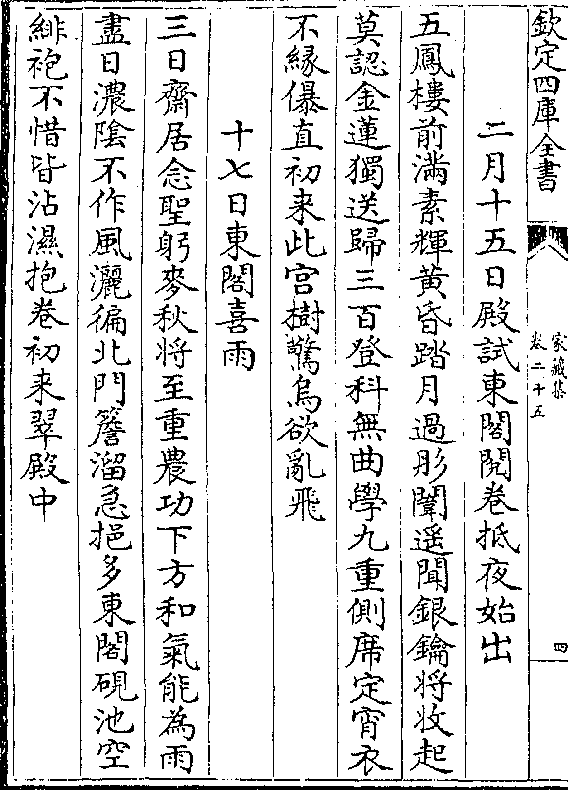 欽定四庫全書
家藏集
卷二十五
四
二月十五日殿試東閣閱卷抵夜始出
五鳳樓前滿素輝黄昏踏月過彤闈遥聞銀鑰將收起
莫認金蓮獨送歸三百登科無曲學九重側席定宵衣
不縁儤直初来此宫樹驚烏欲亂飛
十七日東閣喜雨
三日齋居念聖躬麥秋將至重農功下方和氣能為雨
盡日濃隂不作風灑徧北門簷溜急挹多東閣硯池空
緋袍不惜皆沾濕抱卷初来翠殿中